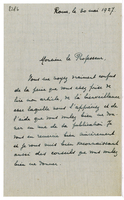 Rome, le 20 mai 1927.
Monsieur le Professeur,
Vous me voyez vraiment confus
de la peine que vous avez prise de
lire mon article, de la bienveillance
avec laquelle vous l'appréciez et de
l'aide que vous voulez bien me don-
ner en vue de sa publication. Je
vous en remercie bien sincèrement
et je vous suis bien reconnaissant
aussi des conseils que vous voulez
bien me donner.